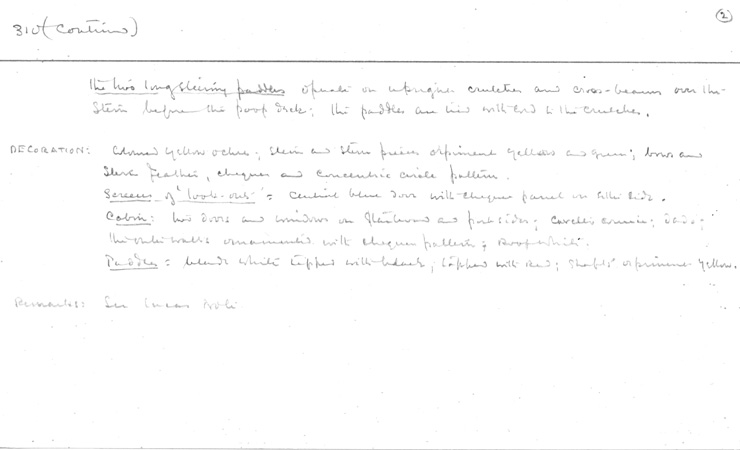 2
310 (Continued)
the two long steering paddles operate on upright crutches and cross-beams over the
stern before the poop deck; the paddles are tied with cord to the crutches.
DECORATION: yellow ochre; stem and stern pieces orpiment yellow and green; bows and
stern feather, chequer and concentric circle pattern.
Screens of "look-out" = central blue door with chequer panel on either side.
Cabin: two doors and windows on starboard and port sides; cavetto cornice;
the outer walls ornamented with chequer pattern; roof white.
Paddles = blades white tipped with black, with red; shafts orpiment yellow.
Remarks: See